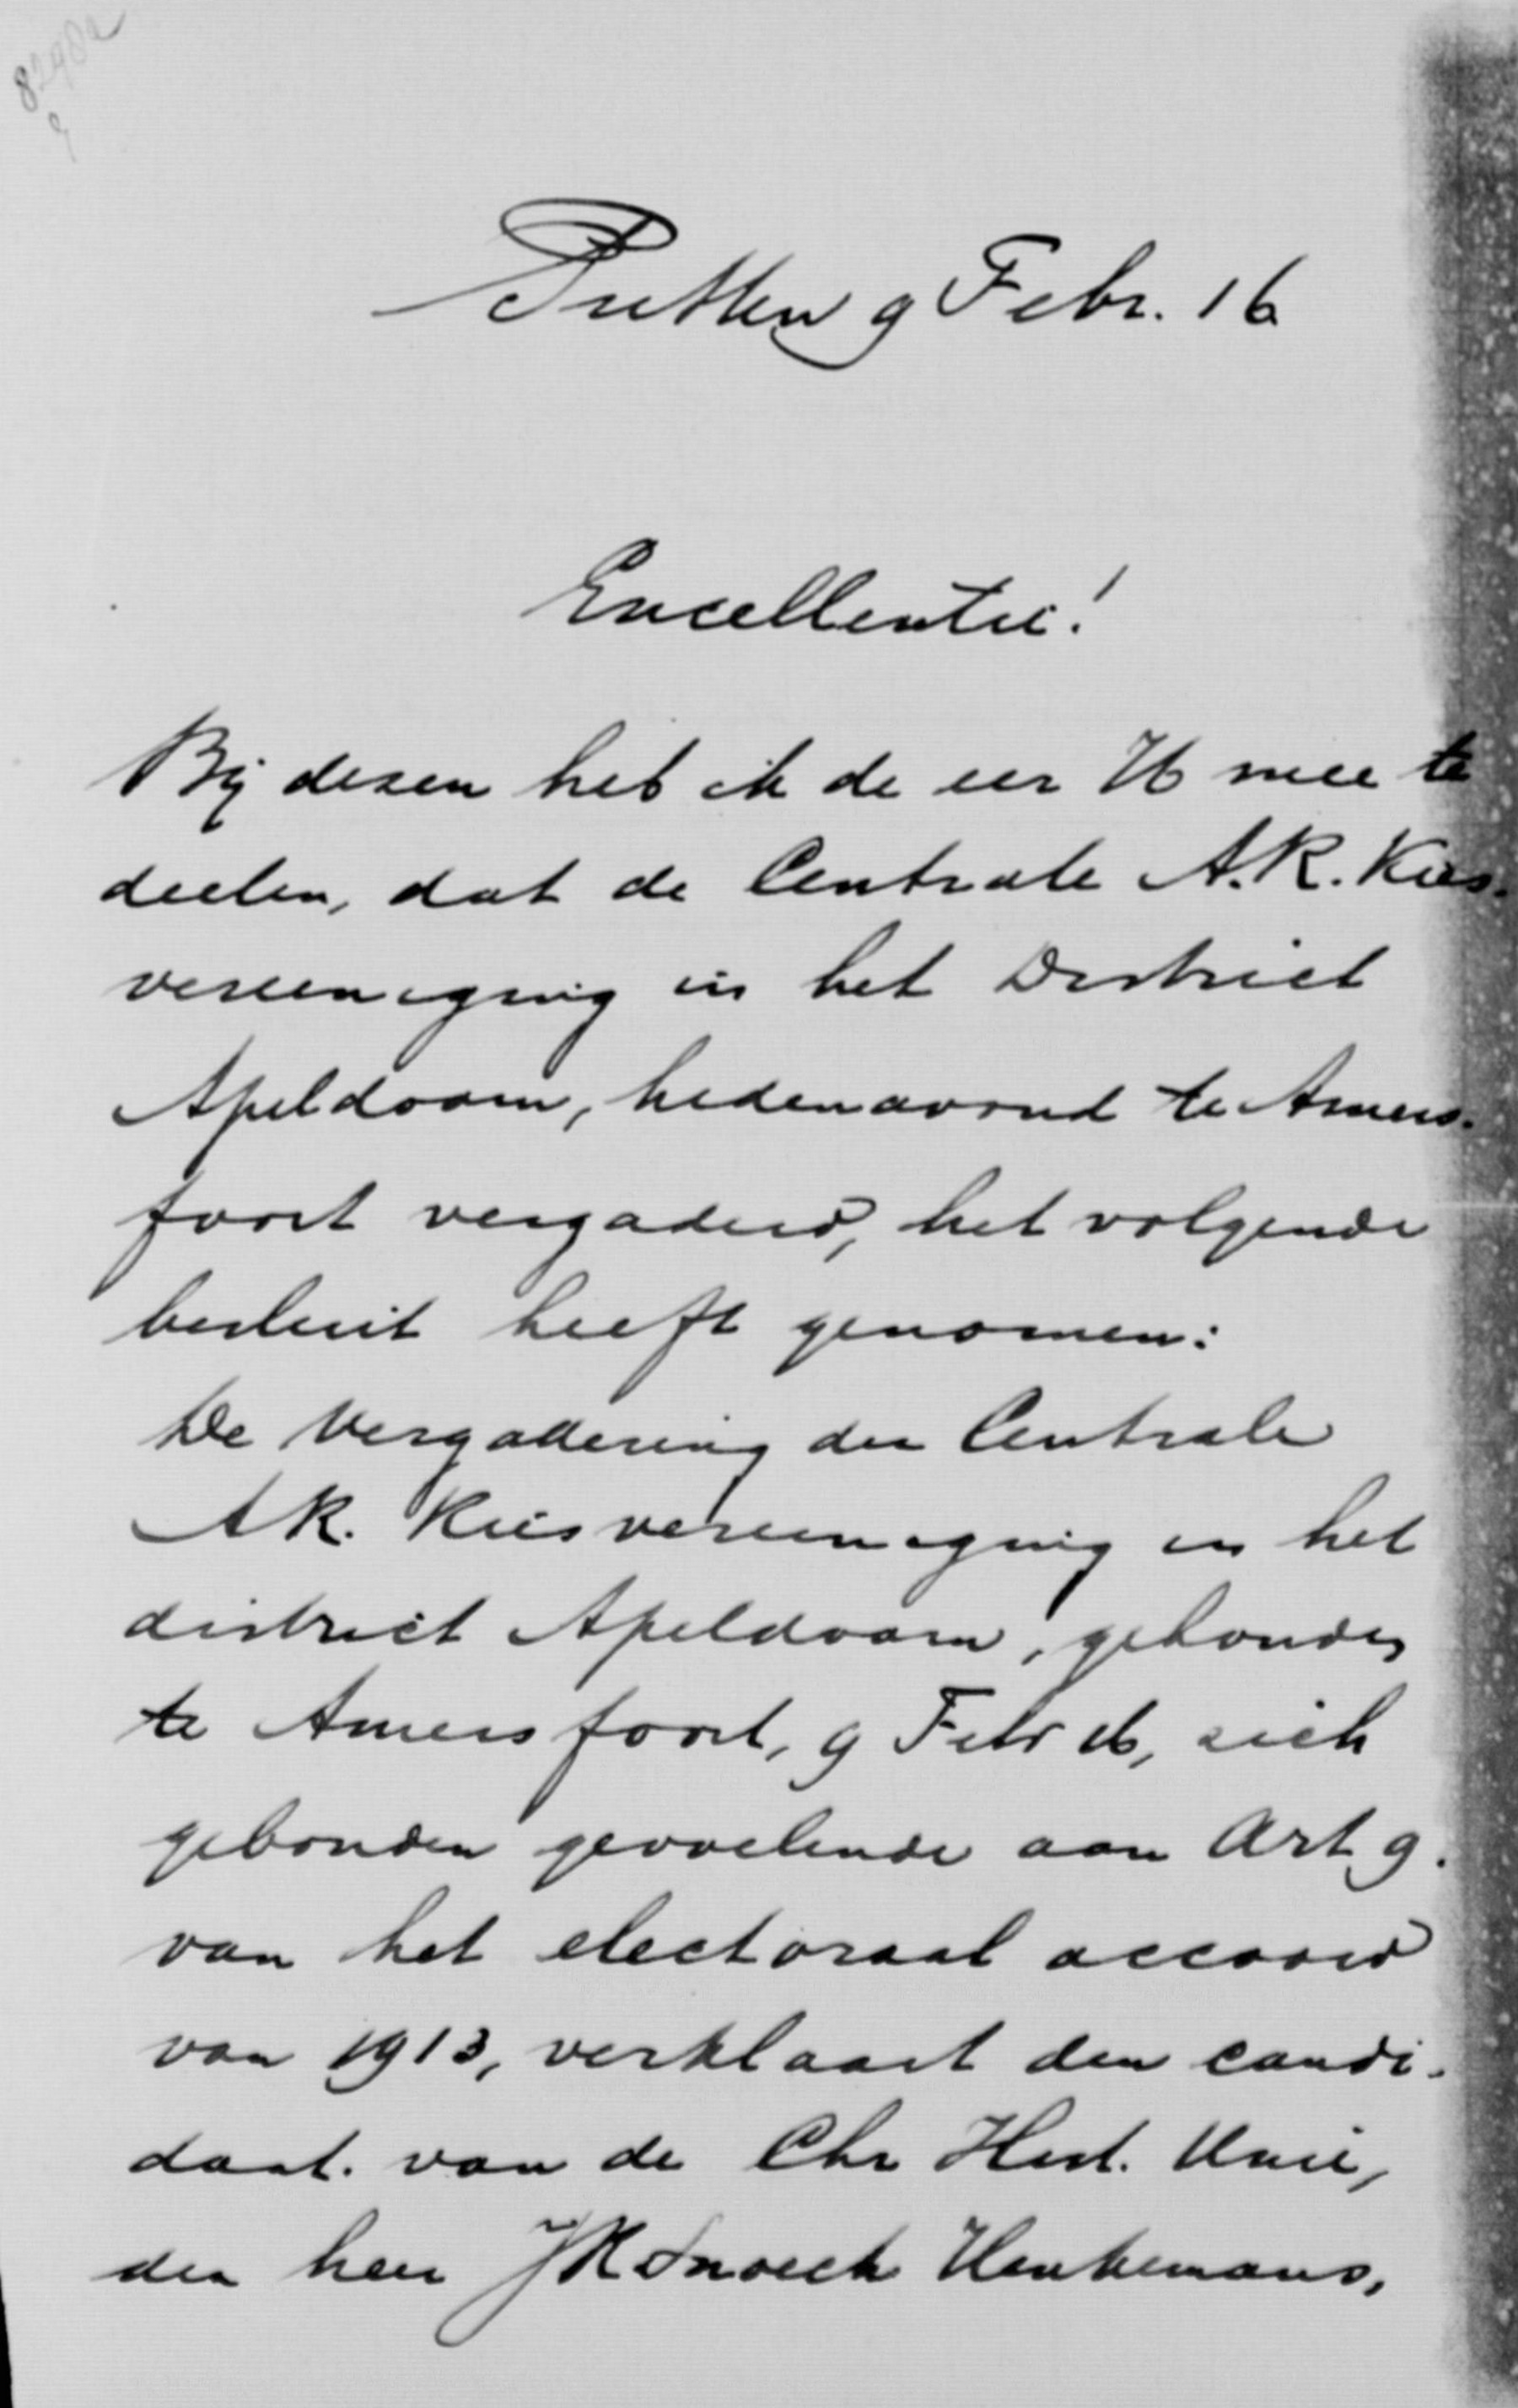 Putten 9 Febr. 16
Excellentie!
Bij dezen heb ik de eer U mee te
deelen, dat de Centrale A.R. Kies-
vereeniging in het District
Apeldoorn, hedenavond te Amers-
foort vergaderd, het volgende
besluit heeft genomen:
De Vergadering der Centrale
AR. Kiesvereeniging in het
district Apeldoorn, gehouden
te Amersfoort, 9 Febr 16, zich
gebonden gevoelende aan Art 9.
van het electoraal accoord
van 1913, verklaart den candi-
daat. van de Chr Hist. Unie,
den heer JR Snoeck Henkemans,